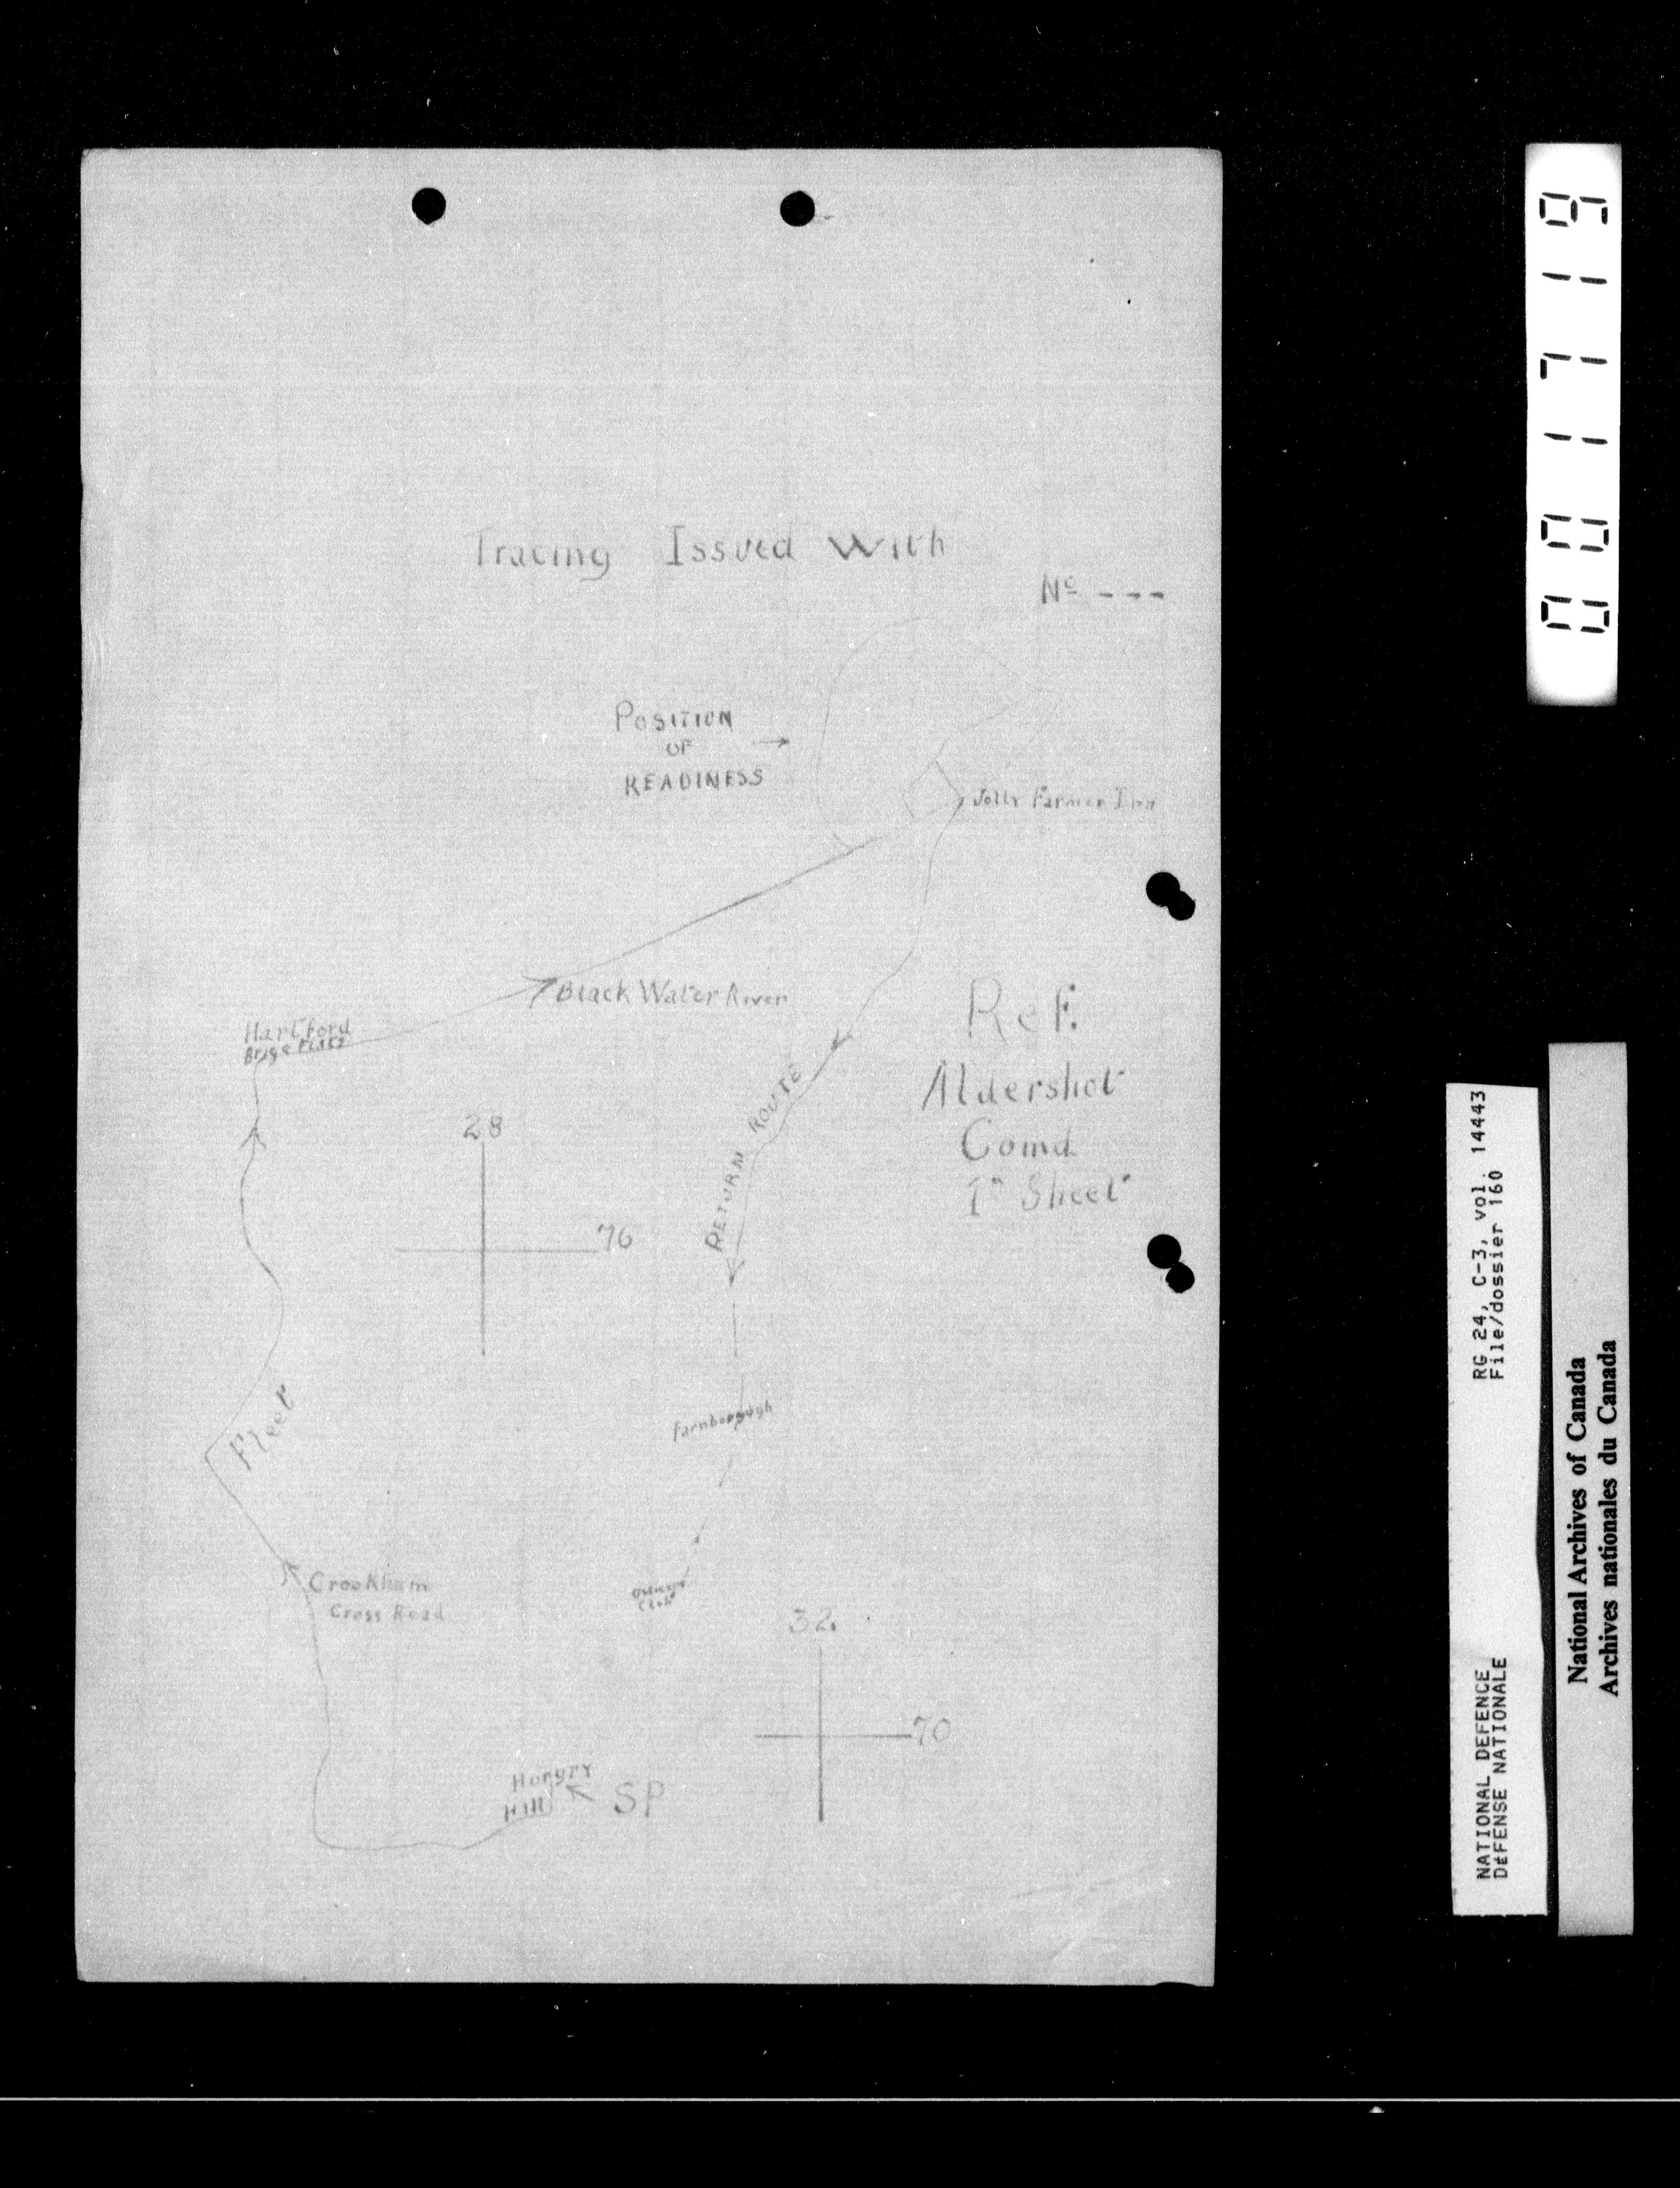 Tracing Issued With
Nº ---
POSITION
OF
READINESS
Jolly Farmer Inn
Black Water River
Hartford
Brige Flats
Ref.
Aldershot
Comd
1" Sheet
RETURN ROUTE
28
76
Fleet
Farnborough
Crookham
Cross Road
Officers
Club
32
70
Hungry
Hill
SP
0017 19
NATIONAL DEFENCE RG 24, C-3, vol. 14443
DéFENSE NATIONALE File/dossier 160
National Archives of Canada
Archives nationales du Canada